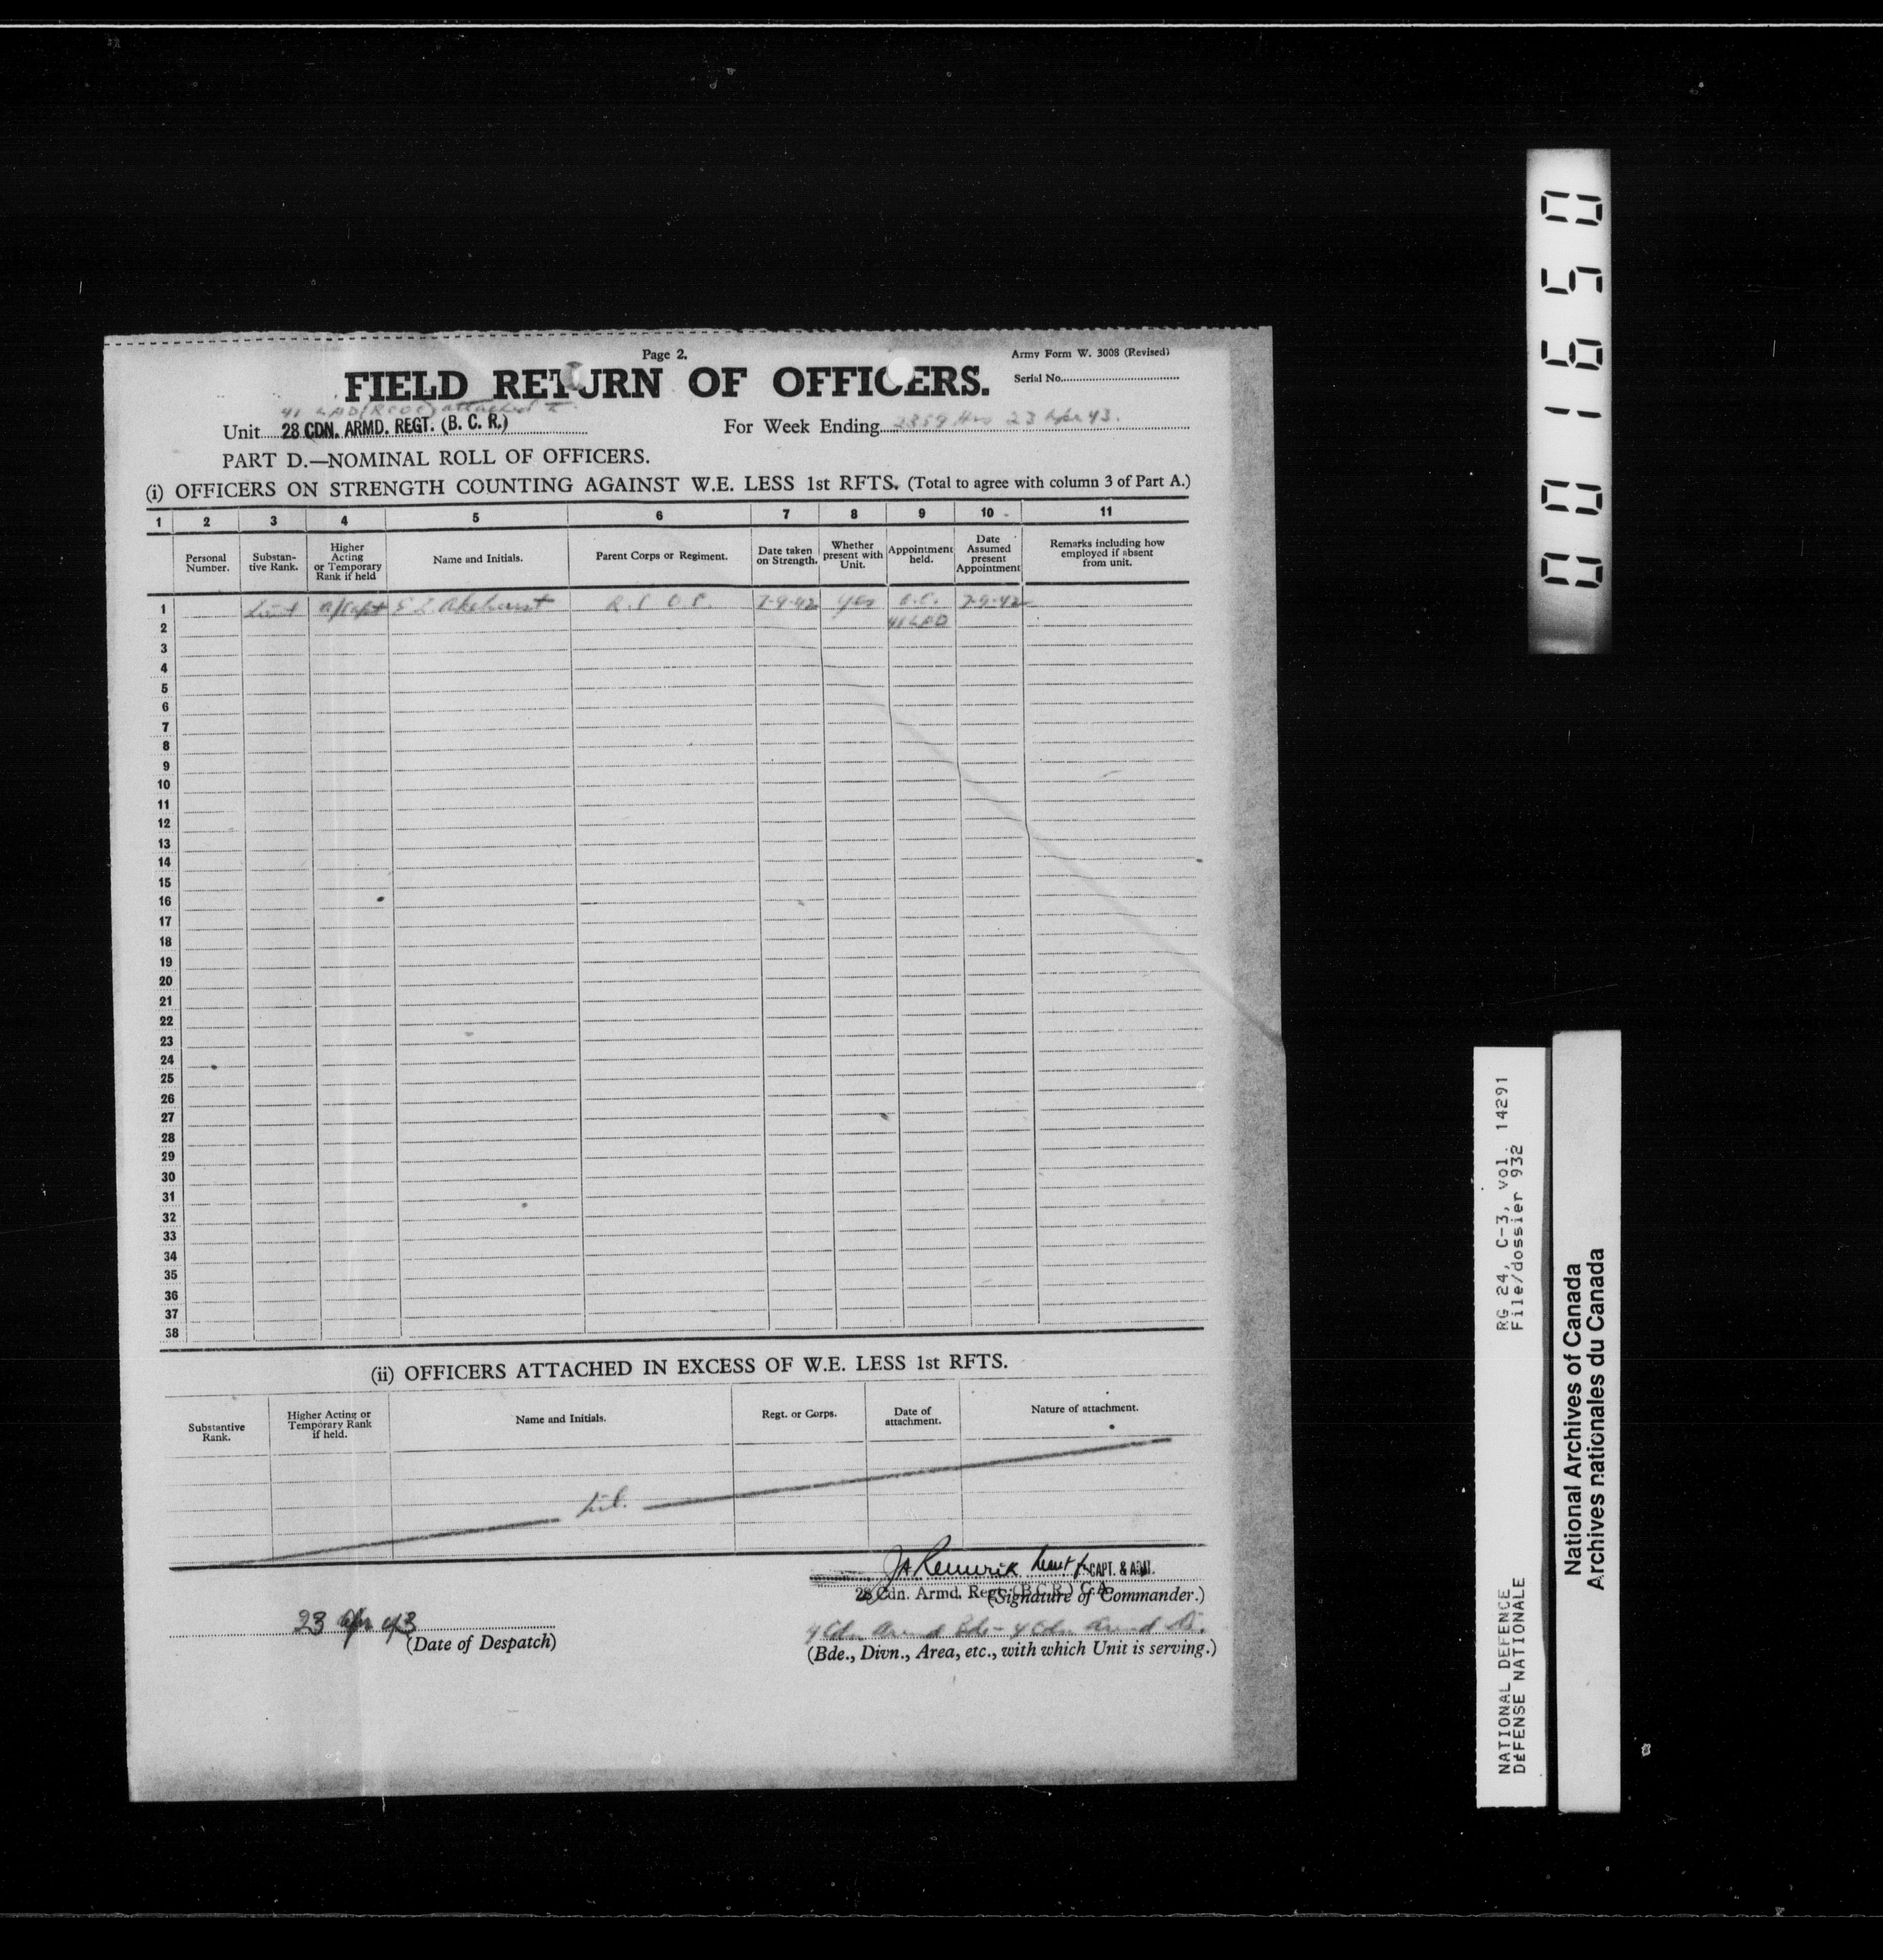 Page 2.
Army Form W. 3008 (Revised)
FIELD RETURN OF OFFICERS.
Serial No.
41 LAD (RCOC) attached to
Unit 28 CDN. ARMD. REGT. (B. C. R.)
For Week Ending 2359 Hrs 23 Apr 43.
PART D.—NOMINAL ROLL OF OFFICERS.
(i) OFFICERS ON STRENGTH COUNTING AGAINST W.E. LESS 1st RFTS. (Total to agree with column 3 of Part A.)
1 2 3 4 5 6 7 8 9 10 11
Personal Number. Substan-tive Rank. Higher Acting or Temporary Rank if held Name and Initials. Parent Corps or Regiment. Date taken on Strength. Whether present with Unit. Appointment held. Date Assumed present Appointment Remarks including how employed if absent from unit.
1 Lieut A/Capt Akehurst R.C.O.C. 7-9-42 yes O.C. 7-9-42
2 41 LAD
3
4
5
6
7
8
9
10
11
12
13
14
15
16
17
18
19
20
21
22
23
24
25
26
27
28
29
30
31
32
33
34
35
36
37
38
(ii) OFFICERS ATTACHED IN EXCESS OF W.E. LESS 1st RFTS.
Substantive Rank. Higher Acting or Temporary Rank if held. Name and Initials. Regt. or Corps. Date of attachment. Nature of attachment.
Nil.
Lieut f. CAPT. & ADJT.
28 Cdn. Armd. Regt. (B.C.R.) C.A.
(Signature of Commander.)
23 Apr 43
(Date of Despatch)
4 Cdn Armd Bde - 4 Cdn Armd Div.
(Bde., Divn., Area, etc., with which Unit is serving.)
0 0 1 6 5 0
RG 24, C-3, vol. 14291
File/dossier 932
NATIONAL DEFENCE
DÉFENSE NATIONALE
National Archives of Canada
Archives nationales du Canada